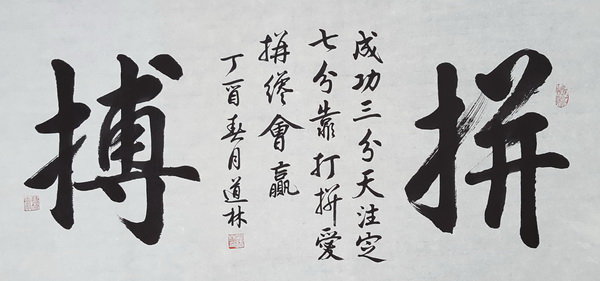 拼
成功三分天注定
七分靠打拼愛
拼纔會贏
丁酉春月道林
搏